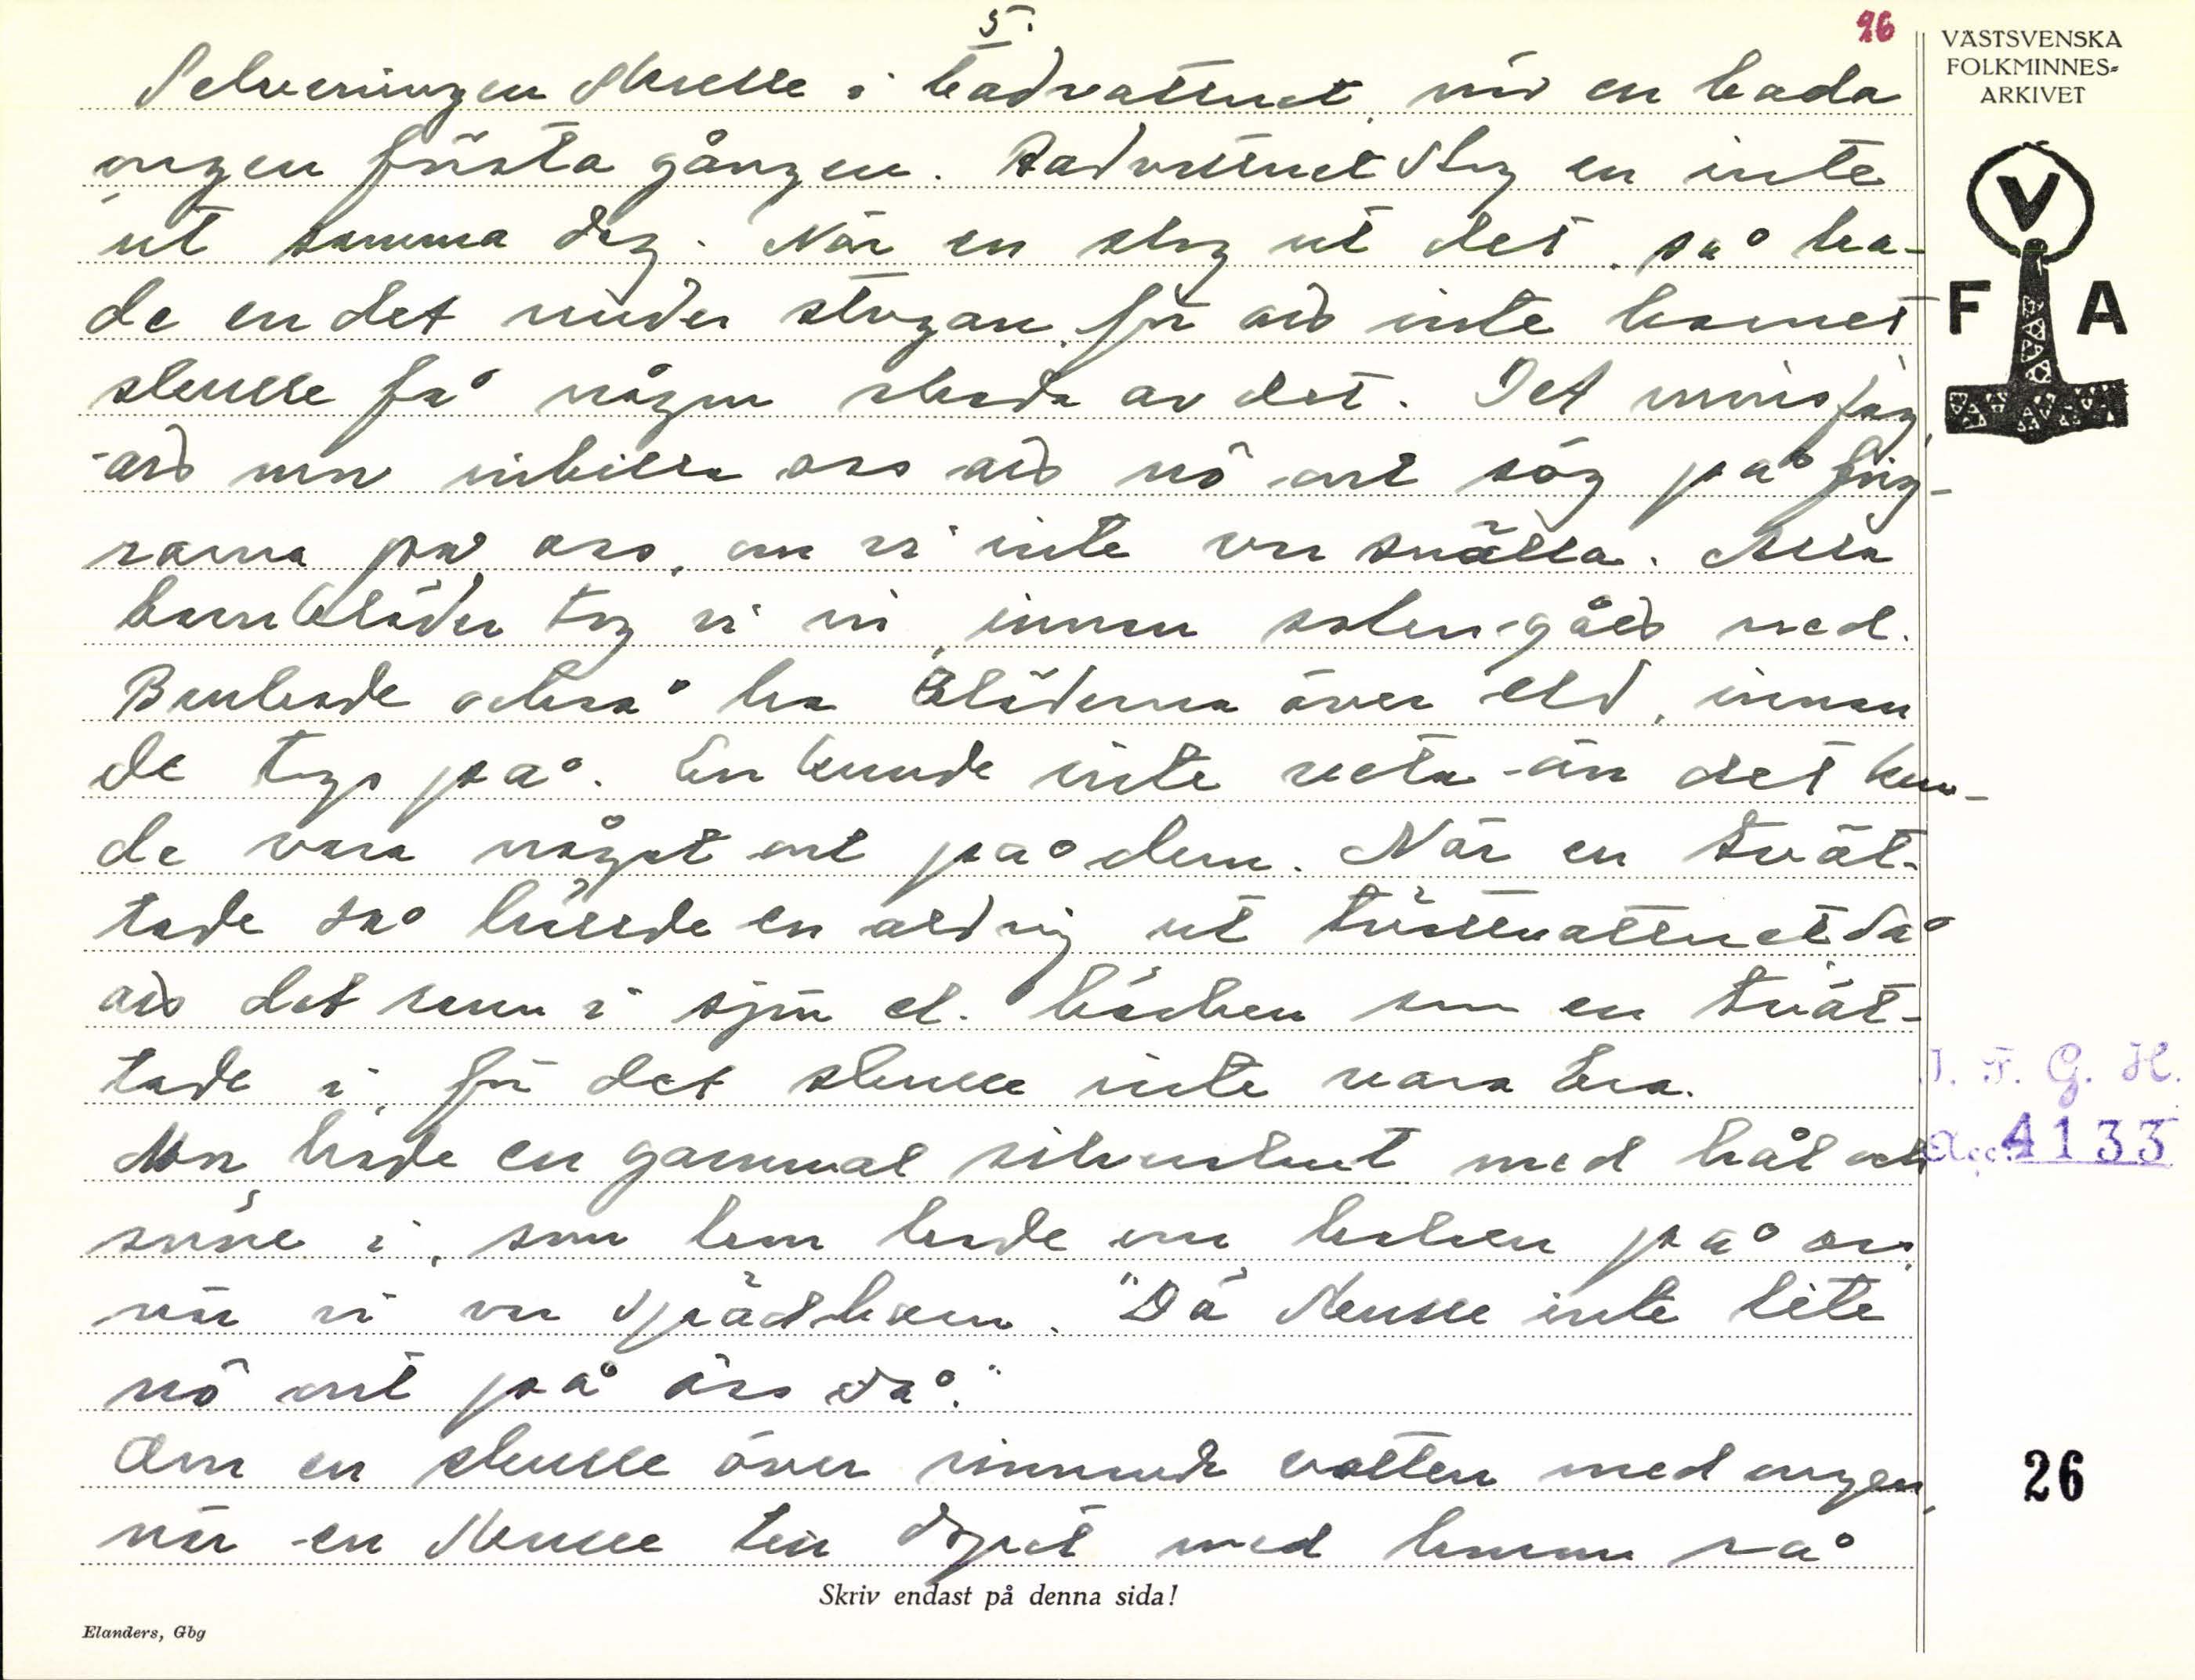 5.
26
VÄSTSVENSKA
FOLKMINNES-
ARKIVET
V
F A
Selverringen skulle i badvattnet, när en bada
ungen första gången. Badvattnet slog en inte
ut samma dag. När en slog ut det, så ha-
de en det under stugan, för att inte barnet
skulle få någon skada av det. Det minns jag,
att mor inbilla oss att nô ont sög på fing-
rarna på oss, om vi inte var snälla. Alla
barnkläder tog vi in, innan solen gått ned.
Brukade också ha kläderna över eld, innan
de togs på. En kunde inte veta än det kun-
de vara något ont på dem. När en tvät-
tade så hällde en aldrig ut tvättvattnet så
att det rann i sjön el. bäcken som en tvät-
tade i, för det skulle inte vara bra.
Mor hade en gammal silverslant med hål och
snöre i, som hon hade om halsen på oss,
när vi var spädbarn. "Dä skulle inte bite
nô ont på öss då."
Om en skulle över rinnande vatten med ungen,
när en skulle till dopet med honom så
J. F. G. H.
Acc. 4133
26
Skriv endast på denna sida!
Elanders, Gbg